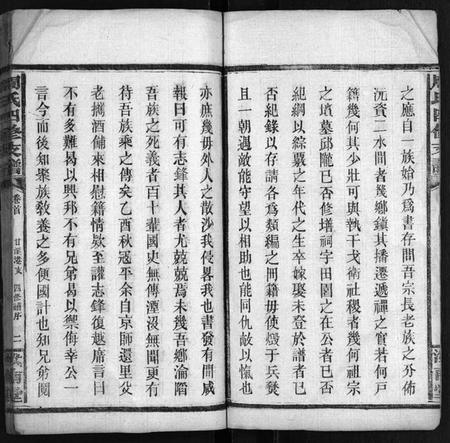 之應自一族始乃爲書存問吾宗長老族之分佈
沅資二水間者幾鄉鎮其播遷遞禪之實若何戶
籍幾何其少壯可與執干戈衛社稷者幾何祖宗
之墳墓邱隴已否修墡祠宇田園之在公者已否
紀綱以綜覈之年代之生卒嫁娶未登於譜者已
否紀錄以存請各爲類編之冊籍毋使燬于兵燹
且一朝遇敵能守望以相助也能同仇敵以愾也
亦庶幾毋外人之散沙我侵畧我也書發有間咸
報曰可有志鋒其人者尤兢兢焉未幾吾鄉淪陷
吾族之死義者百十輩國史無傳湮沒無聞更有
待吾族乘之傳矣乙酉秋寇平余自京師還里父
老攜酒備來相慰藉情欵至讙志鋒復越席言曰
不有多難曷以興邦不有兄弟曷以禦侮幸公一
言今而後知聚族敎養之多便國計也知兄弟鬩
周氏四修支譜
卷首
甘溪港支
四修譜序
二